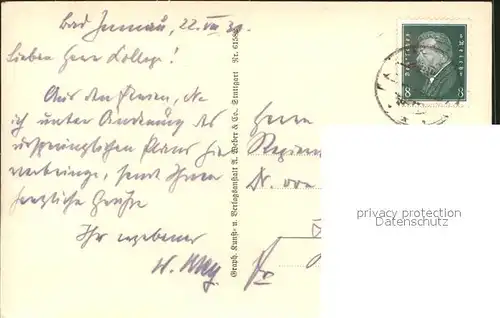 Bad Imnau, 22. VIII 30.
Lieben Herr Kollege!
Aus den Ferien, die
ich unter Änderung des
ursprünglichen Plans hier
verbringe, sendet Ihnen
herzliche Grüße
Ihr ergebener
Graph. Kunst- u. Verlagsanstalt A. Weber & Co. Stuttgart Nr. 6158
Herrn
Dr. von
Deutsches Reich
8 8
privacy protection
Datenschutz